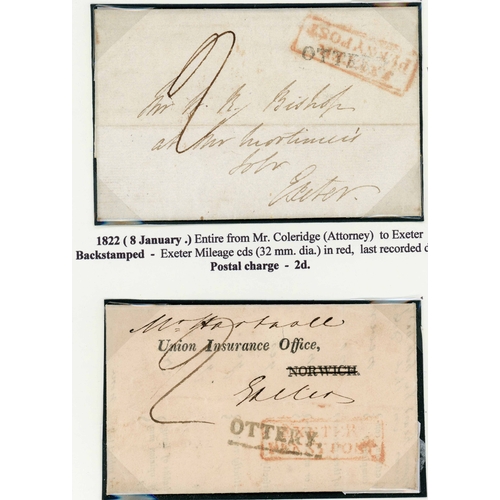 2
OTTERY
EXETER
PENNY POST
Bishop
at Mr Mortimer's
Exeter
1822 ( 8 January .) Entire from Mr. Coleridge (Attorney)  to Exeter
Backstamped  -  Exeter Mileage cds (32 mm. dia.) in red,  last recorded d
Postal charge  -  2d.
Mr Hartnoll
Union Insurance Office,
NORWICH.
Exeter
2
OTTERY.
EXETER
PENNY POST